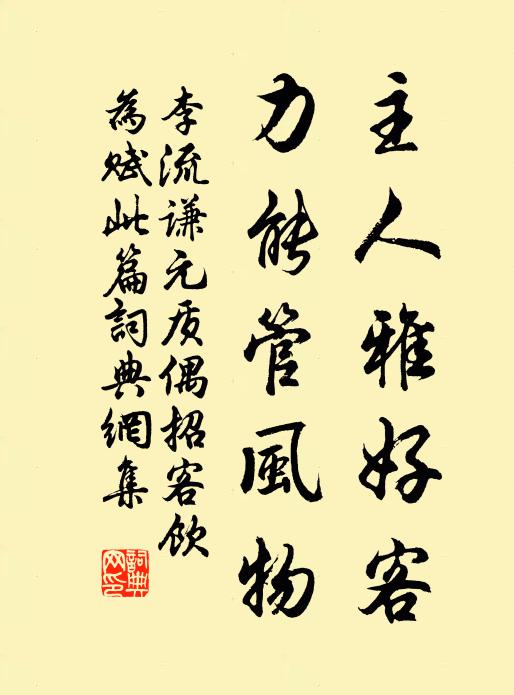 主人雅好客
力能管風物
李流谦元质偶招客饮
為賦此篇詞典網集
詞典
网印